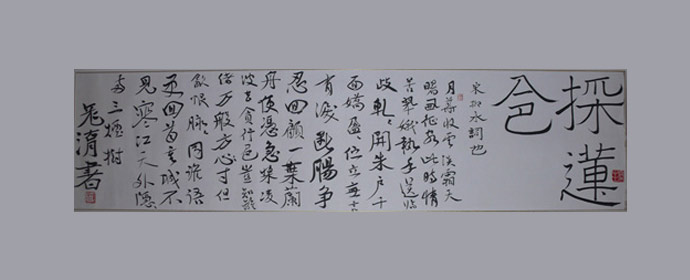 採蓮
令
宋柳永詞也
月華收雲淡霜天
曙西征客此時情
苦翠娥執手送臨
歧軋〻開朱戶千
面嬌盈伫立無言
有淚斷腸爭
忍回顧一葉蘭
舟便恁急槳凌
波去貪行色豈知離
緒万般方寸但
飲恨脉〻同誰語
更回首重城不
見寒江天外隱
〻兩三煙樹
書